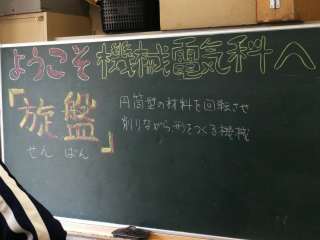 ようこそ機械電気科へ
「旋盤」
せん ばん
円筒型の材料を回転させ
削りながら形をつくる機械